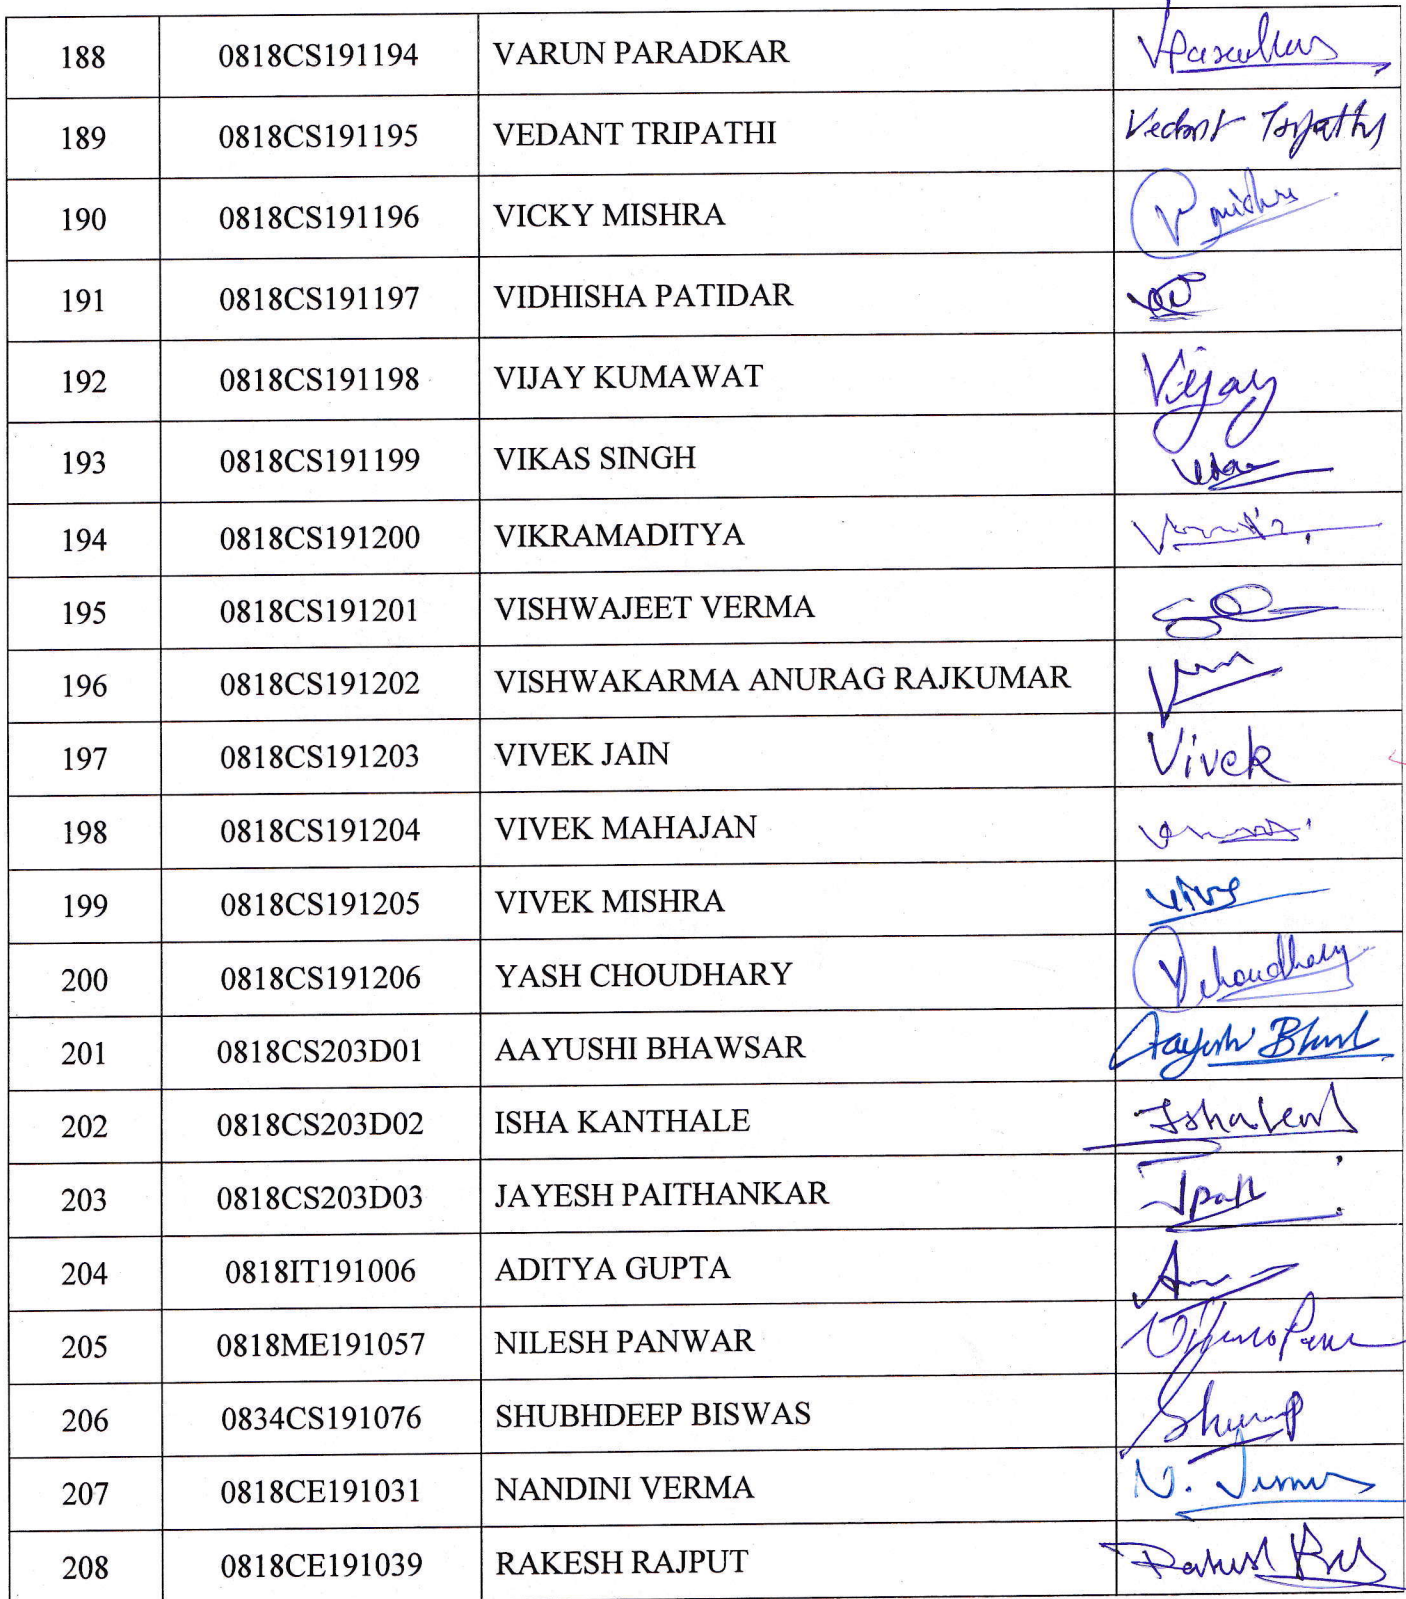 188 0818CS191194 VARUN PARADKAR
189 0818CS191195 VEDANT TRIPATHI Vedant Tripathi
190 0818CS191196 VICKY MISHRA
191 0818CS191197 VIDHISHA PATIDAR
192 0818CS191198 VIJAY KUMAWAT Vijay
193 0818CS191199 VIKAS SINGH
194 0818CS191200 VIKRAMADITYA
195 0818CS191201 VISHWAJEET VERMA
196 0818CS191202 VISHWAKARMA ANURAG RAJKUMAR
197 0818CS191203 VIVEK JAIN Vivek
198 0818CS191204 VIVEK MAHAJAN
199 0818CS191205 VIVEK MISHRA
200 0818CS191206 YASH CHOUDHARY Ychoudhary
201 0818CS203D01 AAYUSHI BHAWSAR
202 0818CS203D02 ISHA KANTHALE
203 0818CS203D03 JAYESH PAITHANKAR
204 0818IT191006 ADITYA GUPTA
205 0818ME191057 NILESH PANWAR
206 0834CS191076 SHUBHDEEP BISWAS
207 0818CE191031 NANDINI VERMA
208 0818CE191039 RAKESH RAJPUT